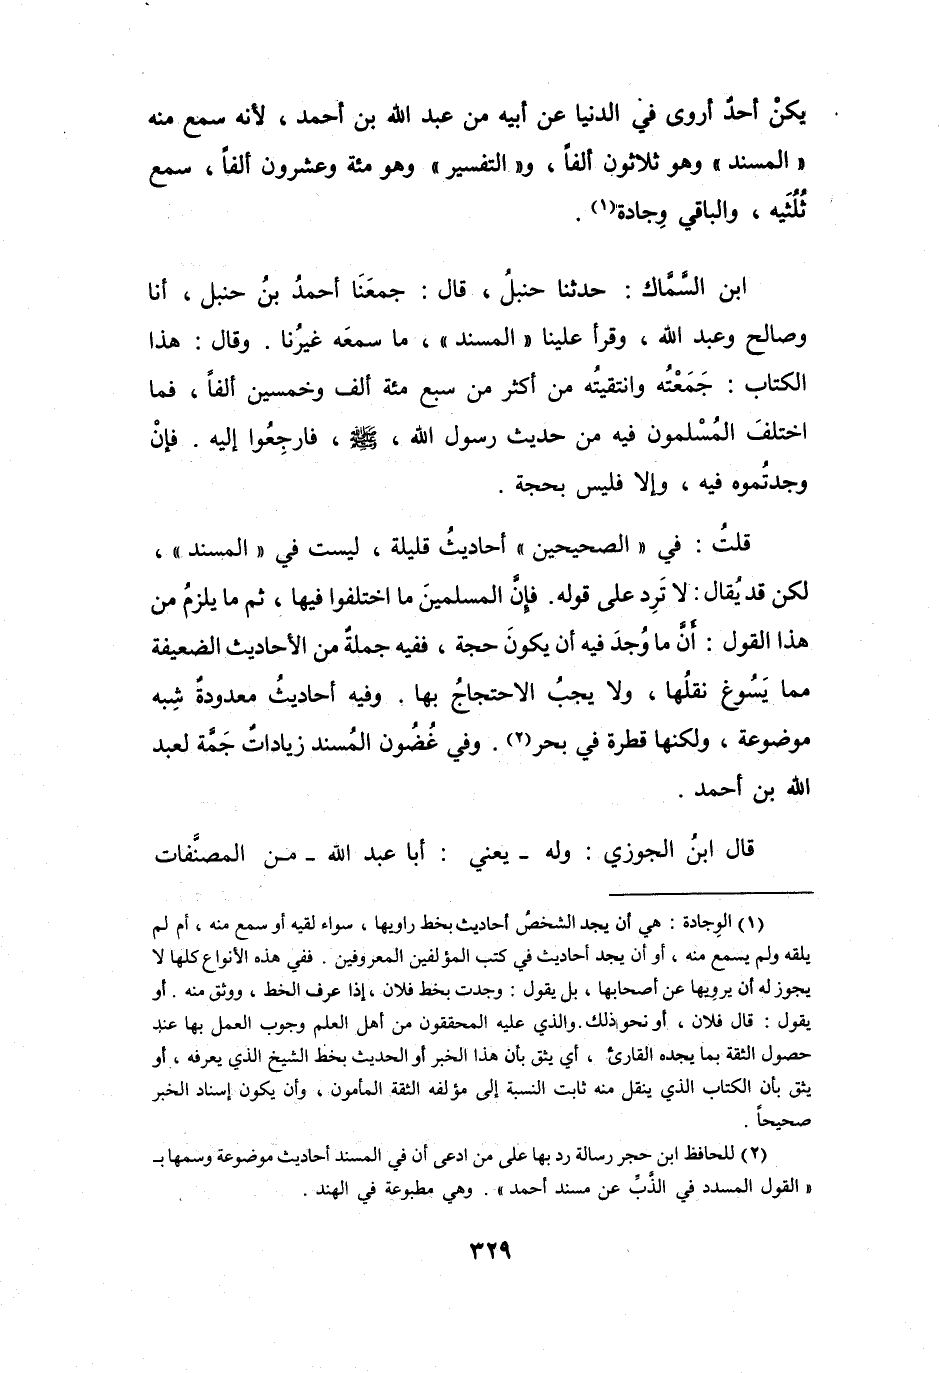 يكنْ أحدٌ أروى في الدنيا عن أبيه من عبد الله بن أحمد ، لأنه سمع منه
« المسند » وهو ثلاثون ألفاً ، و« التفسير » وهو مئة وعشرون ألفاً ، سمع
ثُلُثَيه ، والباقي وِجادة(١) .
ابن السَّمَّاك : حدثنا حنبلُ ، قال : جمعَنَا أحمدُ بنُ حنبل ، أنا
وصالح وعبد الله ، وقرأ علينا « المسند » ، ما سمعَه غيرُنا . وقال : هذا
الكتاب : جَمَعْتُه وانتقيتُه من أكثر من سبع مئة ألف وخمسين ألفاً ، فما
اختلفَ المُسْلمون فيه من حديث رسول الله ، ﷺ ، فارجِعُوا إليه . فإنْ
وجدتُموه فيه ، وإلا فليس بحجة .
قلتُ : في « الصحيحين » أحاديثُ قليلة ، ليست في « المسند » ،
لكن قد يُقال : لا تَرِد على قوله. فإنَّ المسلمينَ ما اختلفوا فيها ، ثم ما يلزمُ من
هذا القول : أَنَّ ما وُجدَ فيه أن يكونَ حجة ، ففيه جملةٌ من الأحاديث الضعيفة
مما يَسُوغ نقلُها ، ولا يجبُ الاحتجاجُ بها . وفيه أحاديثُ معدودةٌ شِبه
موضوعة ، ولكنها قطرة في بحر(٢) . وفي غُضُون المُسند زياداتٌ جَمَّة لعبد
الله بن أحمد .
قال ابنُ الجوزي : وله ـ يعني : أبا عبد الله ـ مـن المصنَّفات
(١) الوِجادة : هي أن يجد الشخصُ أحاديث بخط راويها ، سواء لقيه أو سمع منه ، أم لم
يلقه ولم يسمع منه ، أو أن يجد أحاديث في كتب المؤلفين المعروفين . ففي هذه الأنواع كلها لا
يجوز له أن يرويها عن أصحابها ، بل يقول : وجدت بخط فلان ، إذا عرف الخط ، ووثق منه . أو
يقول : قال فلان ، أو نحو ذلك. والذي عليه المحققون من أهل العلم وجوب العمل بها عند
حصول الثقة بما يجده القارئ ، أي يثق بأن هذا الخبر أو الحديث بخط الشيخ الذي يعرفه ، أو
يثق بأن الكتاب الذي ينقل منه ثابت النسبة إلى مؤلفه الثقة المأمون ، وأن يكون إسناد الخبر
صحيحاً .
(٢) للحافظ ابن حجر رسالة رد بها على من ادعى أن في المسند أحاديث موضوعة وسمها بـ
« القول المسدد في الذَّبِّ عن مسند أحمد » . وهي مطبوعة في الهند .
٣٢٩